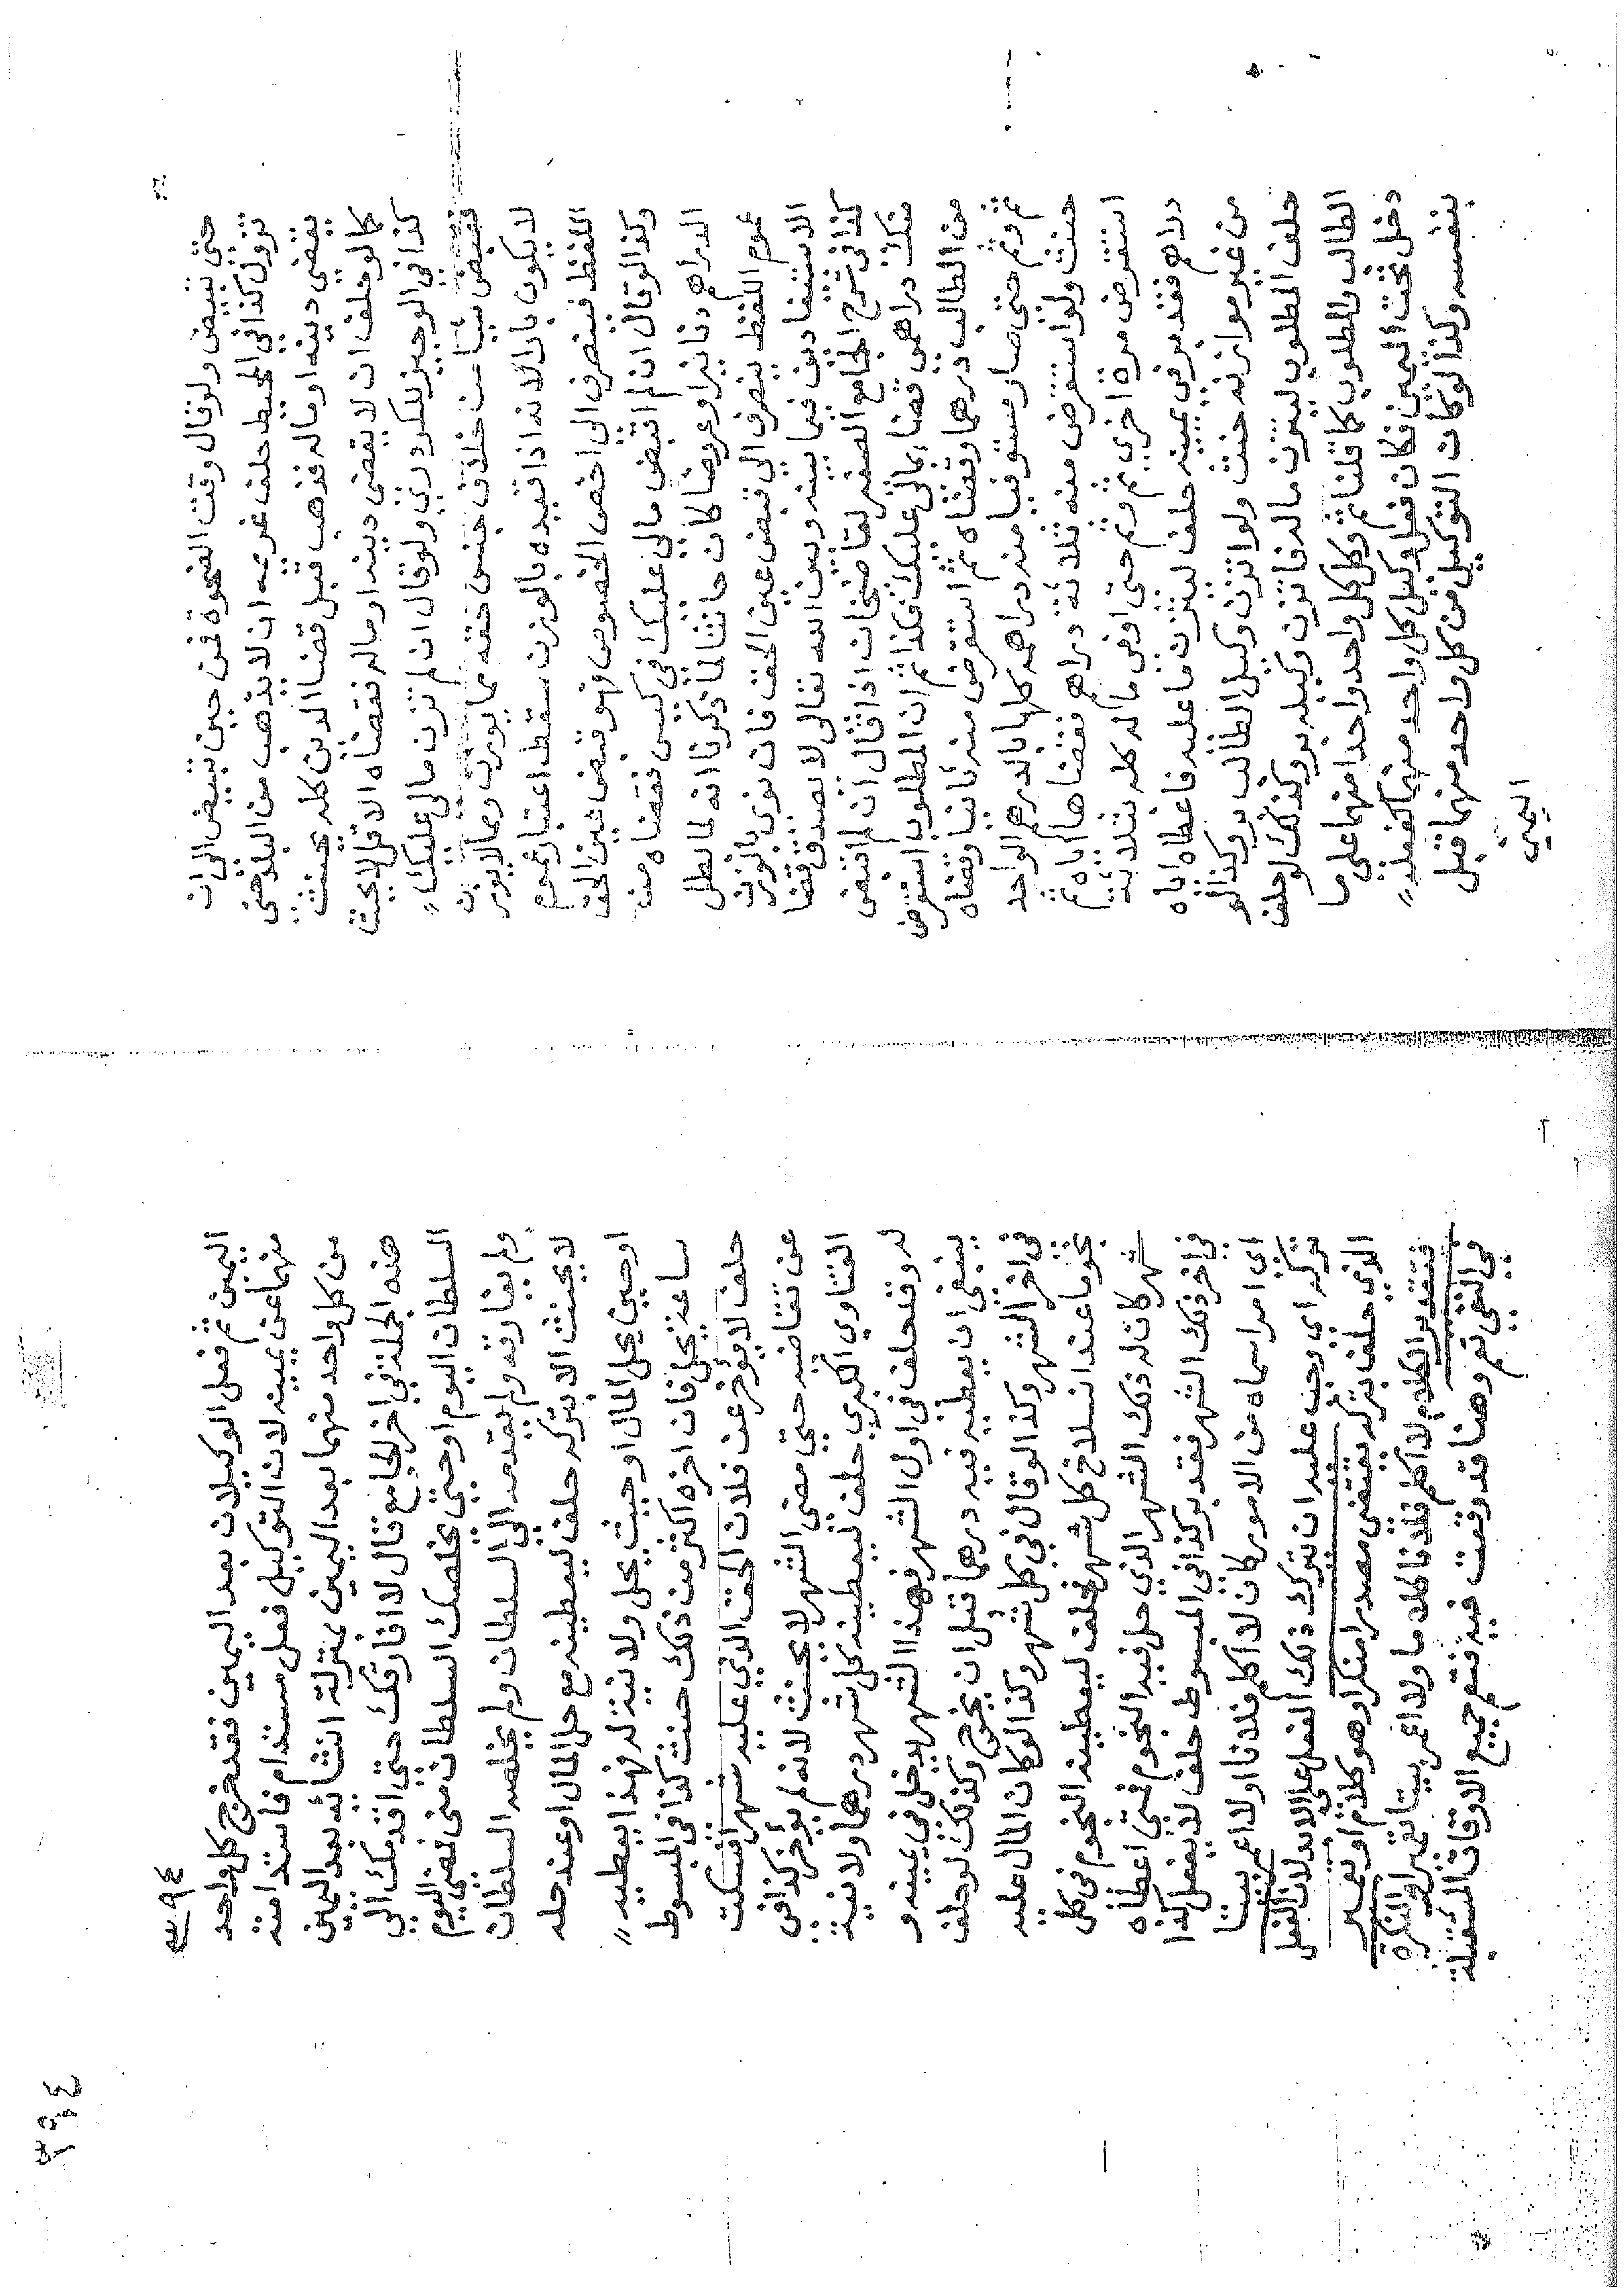 حتى تبيض ولو قال وقت الضحوة فمن حين تبيض الى ان
تزول كذا في المحيط حلف غريمه ان لا يذهب من البلد حتى
يقضي دينه او ماله فذهب قبل قضا الدين كله يحنث
كما لو حلف ان لا يقضي دينه او ماله فقضاه الاقل لا يحنث
كذا في الوجيز للكردري ولو قال ان لم تزن مالي عليك
فقبض ثيابا من خلاف جنس حقه مما يوزن ومما لا يوزن
لا يكون بارا لانه اذا قيده بالوزن سقط اعتبار عموم
اللفظ فينصرف الى اخص الخصوص فهو قبض عين الحق
وكذا لو قال ان لم اقبض مالي عليك في كيس فقضاه من
الدراهم دنانير او عروضا كان حانثا لما ذكرنا انه لما بطل
عموم اللفظ ينصرف الى قبض عين الحق فان نوى بالوزن
الاستيفا دين فيما بينه وبين الله تعالى لا يصدق قضا
كذا في شرح الجامع الصغير لقاضيخان اذا قال ان لم اقبض
منك دراهمي قضاء بمالي عليك فكذا ثم ان المطلوب استقرض
من الطالب درهما وقضاه ثم استقرض منه ثانيا وقضاه
ثم وثم حتى صار مستوفيا منه دراهمه كلها بالدرهم الواحد
حنث ولو استقرض منه ثلاثة دراهم فقضاها اياه ثم
استقرض مرة اخرى ثم وثم حتى اوفى ماله كله بثلاثة
دراهم فقد بر في يمينه حلف ليتزن ما عليه فاعطاه اياه
من غير موازنه حنث ولو اتزن وكيل الطالب بر وكذا لو
حلف المطلوب ليتزن ماله فاتزن وكيله بر وكذلك لو حلف
الطالب والمطلوب كما قلنا ثم وكل كل واحد واحدا منهما على ما
دخل تحت اليمين فكان فعل وكيل كل واحد منهما كفعله
بنفسه وكذا لو كان التوكيل من كل واحد منهما قبل
اليمين
٣٩٤
اليمين ثم فعل الوكيلان بعد اليمين فقد خرج كل واحد
منهما عن يمينه لان التوكيل فعل مستدام فاستدامته
من كل واحد منهما بعد اليمين بمنزلة انشائه بعد اليمين
هذه الجملة في اخر الجامع قال لا افارقك حتى اقدمك الى
السلطان اليوم او حتى يخلصك السلطان منى فمضى اليوم
ولم يفارقه ولم يقدمه الى السلطان ولم يخلصه السلطان
لا يحنث الا بتركه حلف ليعطينه مع حل المال او عند حله
او حين يحل المال او حيث يحل ولا نية له فهذا يعطيه
ساعة يحل فان اخره اكثر من ذلك حنث كذا في المبسوط
حلف لا يؤخر عن فلان الحق الذي عليه شهرا فسكت
عن تقاضيه حتى مضى الشهر لا يحنث لانه لم يؤخر كذا في
الفتاوي الكبري حلف ليعطينه كل شهر درهما ولا نية
له وقد حلف في اول الشهر فهذا الشهر يدخل في يمينه و
ينبغي ان يعطيه فيه درهما قبل ان يخرج وكذلك لو حلف
في اخر الشهر وكذا لو قال في كل شهر وكذا لو كان المال عليه
نجوما عند انسلاخ كل شهر فحلف ليعطينه النجوم في كل
شهر كان له ذلك الشهر الذي حل فيه النجوم فمتى اعطاه
في اخر ذلك الشهر فقد بر كذا في المبسوط حلف لا يفعل كذا
اي امرا سماه من الامور كان لا اكلم فلانا او لا اعمر بيتا
تركه اي وجب عليه ان يترك ذلك الفعل على الابد لان الفعل
الذي حلف بتركه يقتضي مصدرا منكرا وهو كلام او تعمير
فتقدير الكلام لا اكلم فلانا كلاما ولا اعمر بيتا تعميرا والنكرة
في النفي تعم وهنا قد وقعت فيه فتعم جميع الاوقات المستقبلة
٣٩٤